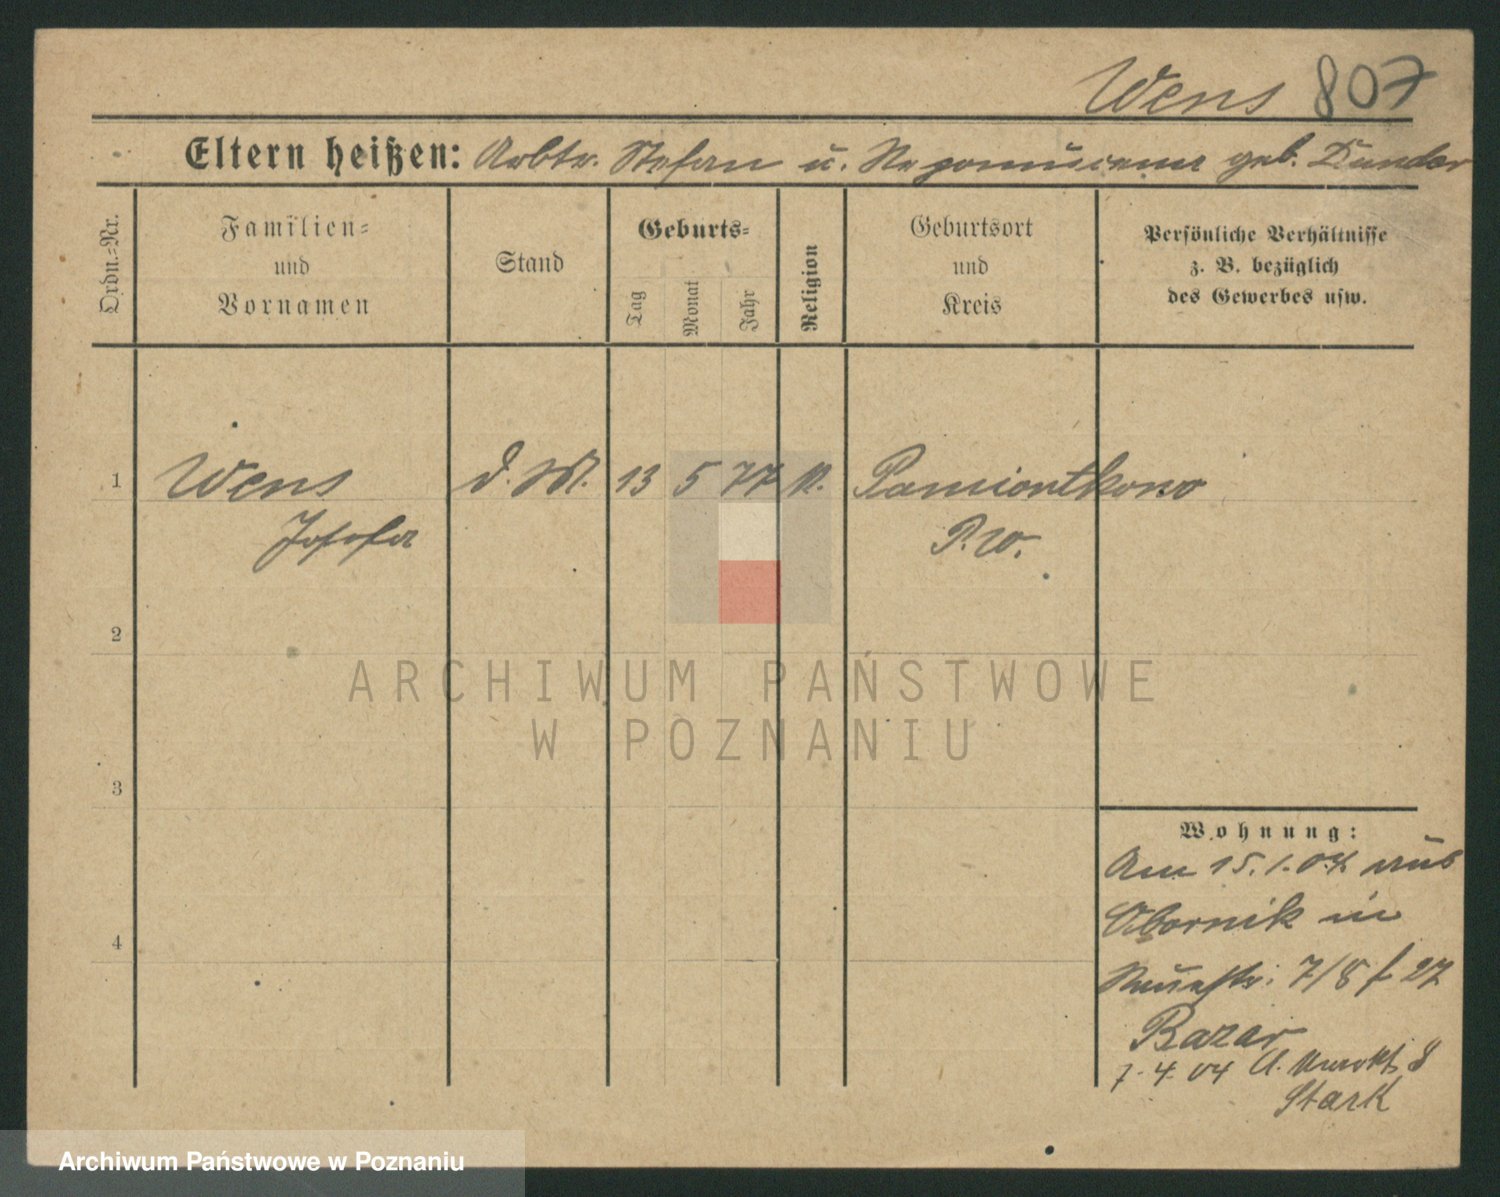 Wens 807
Eltern heißen: Arbtr. Stefan u. Nepomucena geb. Dunder
Ordn.-Nr.
Familien-
und
Vornamen
Stand
Geburts-
Tag
Monat
Jahr
Religion
Geburtsort
und
Kreis
Persönliche Verhältnisse
z. B. bezüglich
des Gewerbes usw.
1 Wens d. M. 13 5 77 K. Pamiontkowo
Josefa P. W.
2
3
4
Wohnung:
Am 15.1.04. aus
Obornik in
Neuestr. 7/8 f 27
Bazar
7. 4. 04 A. Markt 8
Stark
ARCHIWUM PAŃSTWOWE
W POZNANIU
Archiwum Państwowe w Poznaniu